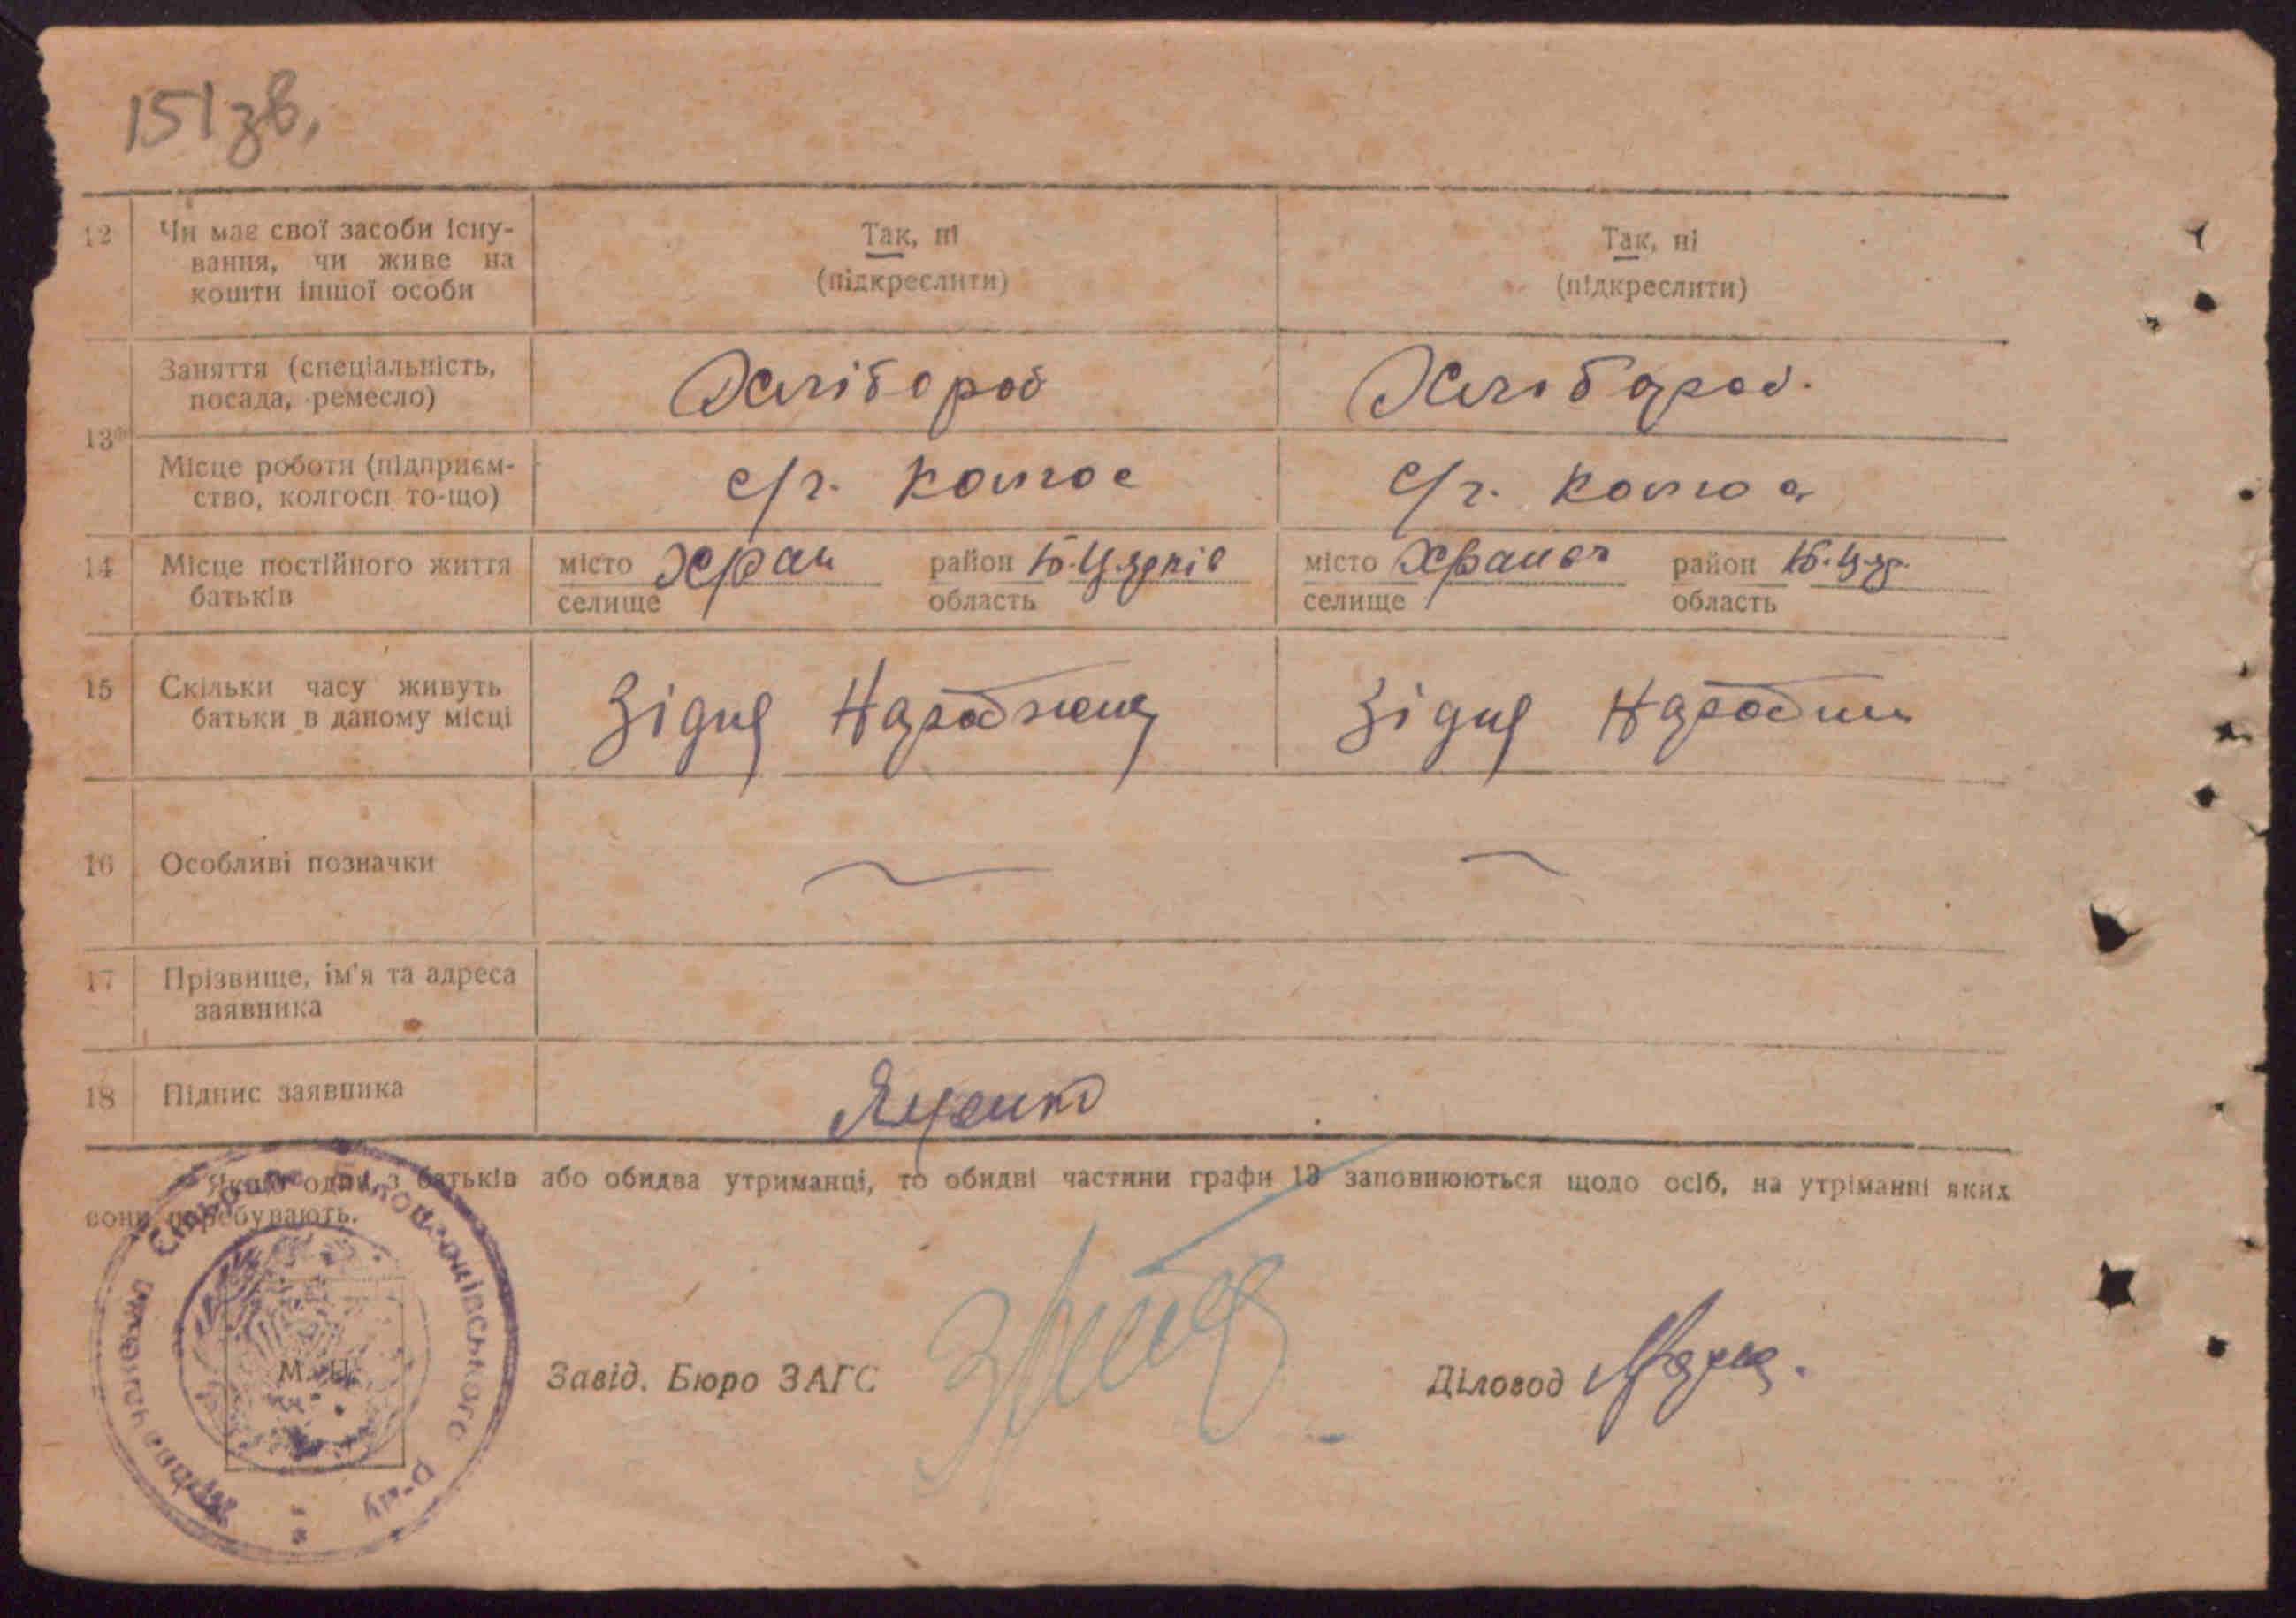 151 зв.
12 Чи має свої засоби існу- Так, ні Так, ні
вання, чи живе на (підкреслити) (підкреслити)
кошти іншої особи
Заняття (спеціальність, Хлібороб Хлібороб.
посада, ремесло)
13*
Місце роботи (підприєм- с/г. колгос с/г. колгос
ство, колгосп то-що)
14 Місце постійного життя місто район Б.Церків місто район Б.Цер.
батьків селище область селище область
15 Скільки часу живуть Зідня Народження Зідня Народжен
батьки в даному місці
16 Особливі позначки
17 Прізвище, ім'я та адреса
заявника
18 Підпис заявника Яценко
Якщо один з батьків або обидва утриманці, то обидві частини графи 13 заповнюються щодо осіб, на утріманні яких
вони перебувають.
Білоцерківського Р-ну
М. П.
Завід. Бюро ЗАГС Діловод